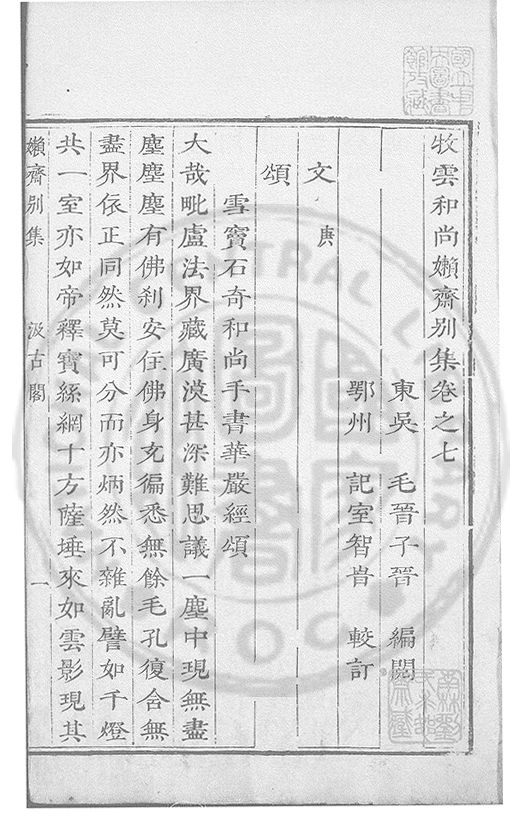 牧雲和尚嬾齋别集卷之七
東吳 毛晉子晉 編閱
鄂州 記室智旹 較訂
文 庚
頌
雪竇石奇和尚手書華嚴經頌
大哉毗盧法界藏廣漠甚深難思議一塵中現無盡
塵塵塵有佛刹安住佛身充徧悉無餘毛孔復含無
盡界依正同然莫可分而亦炳然不雜亂譬如千燈
共一室亦如帝釋寶絲網十方薩埵來如雲影現其
嬾齋别集 汲古閣 一